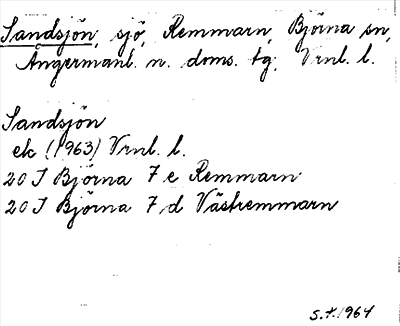 Sandsjön, sjö, Remmarn, Björna sn,
Ångermanl. n. doms. tg, Vrnl. l.
Sandsjön
ek (1963) Vrnl. l.
20 I Björna 7 e Remmarn
20 I Björna 7 d Västremmarn
S.t. 1964